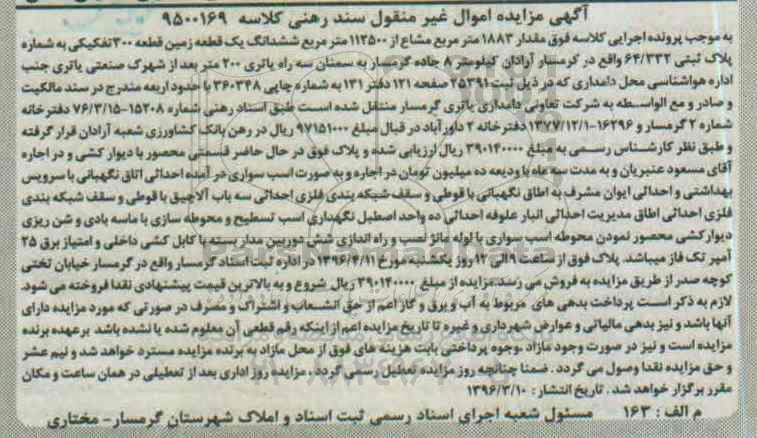 آگهی مزایده اموال غیر منقول سند رهنی کلاسه ۹۵۰۰۱۶۹
به موجب پرونده اجرایی کلاسه فوق مقدار ۱۸۸۳ متر مربع مشاع از ۱۱۳۵۰۰ متر مربع ششدانگ یک قطعه زمین قطعه ۳۰۰ تفکیکی به شماره
پلاک ثبتی ۶۴/۳۳۲ واقع در گرمسار آرادان کیلومتر ۸ جاده گرمسار به سمنان سه راه یاتری ۲۰۰ متر بعد از شهرک صنعتی یاتری جنب
اداره هواشناسی محل دامداری که در ذیل ثبت ۲۵۳۹۱ صفحه ۱۲۱ دفتر ۱۳۱ به شماره چاپی ۳۶۰۳۴۸ با حدود اربعه مندرج در سند مالکیت
و صادر و مع الواسطه به شرکت تعاونی دامداری یاتری گرمسار منتقل شده است طبق اسناد رهنی شماره ۱۵۲۰۸-۷۶/۳/۱۵ دفترخانه
شماره ۲ گرمسار و ۱۶۲۹۶-۱۳۷۷/۱۲/۱ دفترخانه ۲ داورآباد در قبال مبلغ ۹۷۱۵۱۰۰۰ ریال در رهن بانک کشاورزی شعبه آرادان قرار گرفته
و طبق نظر کارشناس رسمی به مبلغ ۳۹۰۱۴۰۰۰۰ ریال ارزیابی شده و پلاک فوق در حال حاضر قسمتی محصور با دیوار کشی و در اجاره
آقای مسعود عنبریان و به مدت سه ماه با ودیعه ده میلیون تومان در اجاره و به صورت اسب سواری در آمده احداثی اتاق نگهبانی با سرویس
بهداشتی و احداثی ایوان مشرف به اطاق نگهبانی با قوطی و سقف شبکه بندی فلزی احداثی سه باب آلاچیق با قوطی و سقف شبکه بندی
فلزی احداثی اطاق مدیریت احداثی انبار علوفه احداثی ده واحد اصطبل نگهداری اسب تسطیح و محوطه سازی با ماسه بادی و شن ریزی
دیوارکشی محصور نمودن محوطه اسب سواری با لوله مانژ نصب و راه اندازی شش دوربین مدار بسته با کابل کشی داخلی و امتیاز برق ۲۵
آمپر تک فاز میباشد. پلاک فوق از ساعت ۹ الی ۱۲ روز یکشنبه مورخ ۱۳۹۶/۴/۱۱ در اداره ثبت اسناد گرمسار واقع در گرمسار خیابان تختی
کوچه صدر از طریق مزایده به فروش می رسد.مزایده از مبلغ ۳۹۰۱۴۰۰۰۰ ریال شروع و به بالاترین قیمت پیشنهادی نقدا فروخته می شود.
لازم به ذکر است پرداخت بدهی های مربوط به آب و برق و گاز اعم از حق انشعاب و اشتراک و مصرف در صورتی که مورد مزایده دارای
آنها باشد و نیز بدهی مالیاتی و عوارض شهرداری و غیره تا تاریخ مزایده اعم از اینکه رقم قطعی آن معلوم شده یا نشده باشد برعهده برنده
مزایده است و نیز در صورت وجود مازاد ،وجوه پرداختی بابت هزینه های فوق از محل مازاد به برنده مزایده مسترد خواهد شد و نیم عشر
و حق مزایده نقدا وصول می گردد . ضمنا چنانچه روز مزایده تعطیل رسمی گردد ، مزایده روز اداری بعد از تعطیلی در همان ساعت و مکان
مقرر برگزار خواهد شد . تاریخ انتشار : ۱۳۹۶/۳/۱۰
م الف : ۱۶۳ مسئول شعبه اجرای اسناد رسمی ثبت اسناد و املاک شهرستان گرمسار- مختاری